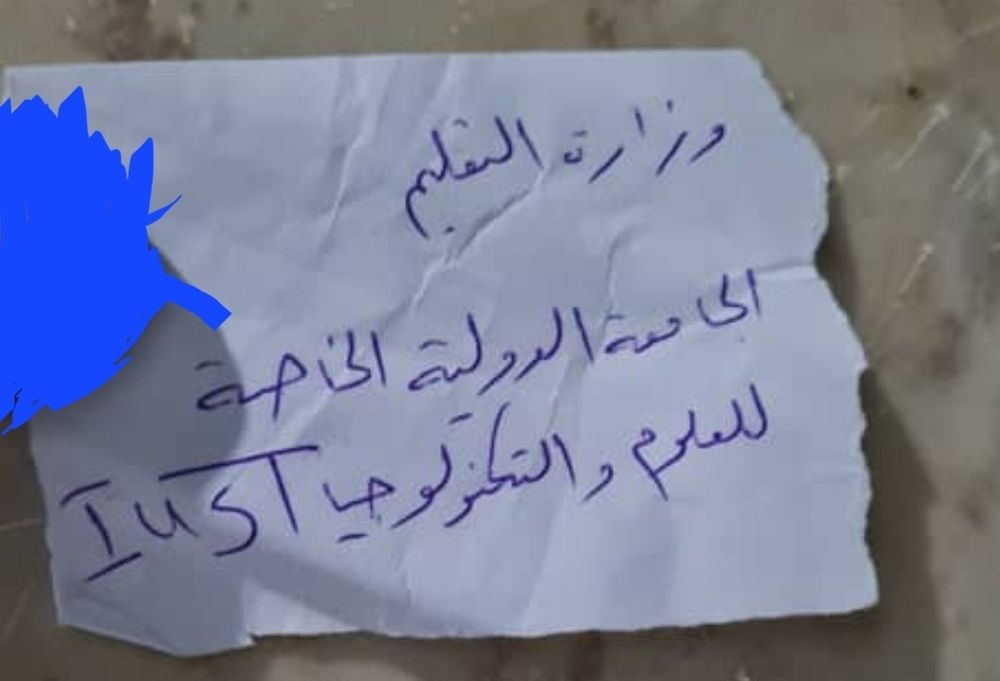 وزارة التعليم
الجامعة الدولية الخاصة
للعلوم و التكنولوجيا IUST